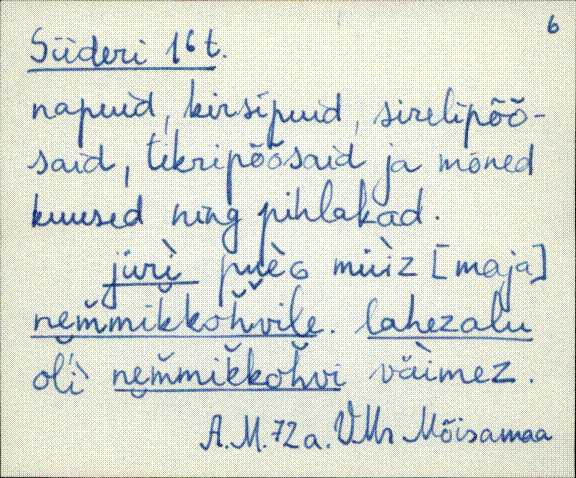 6
Süderi 16 t.
napuid, kirsipuid, sirelipõõ-
said, tikripõõsaid ja mõned
kuused ning pihlakad.
jürì̬ müìz [maja]
nem̆mikkoh̆vile. lahezalu
ol̆ì nem̆mik̆koh̆vi väìmez.
A.M. 72 a. VMr Mõisamaa